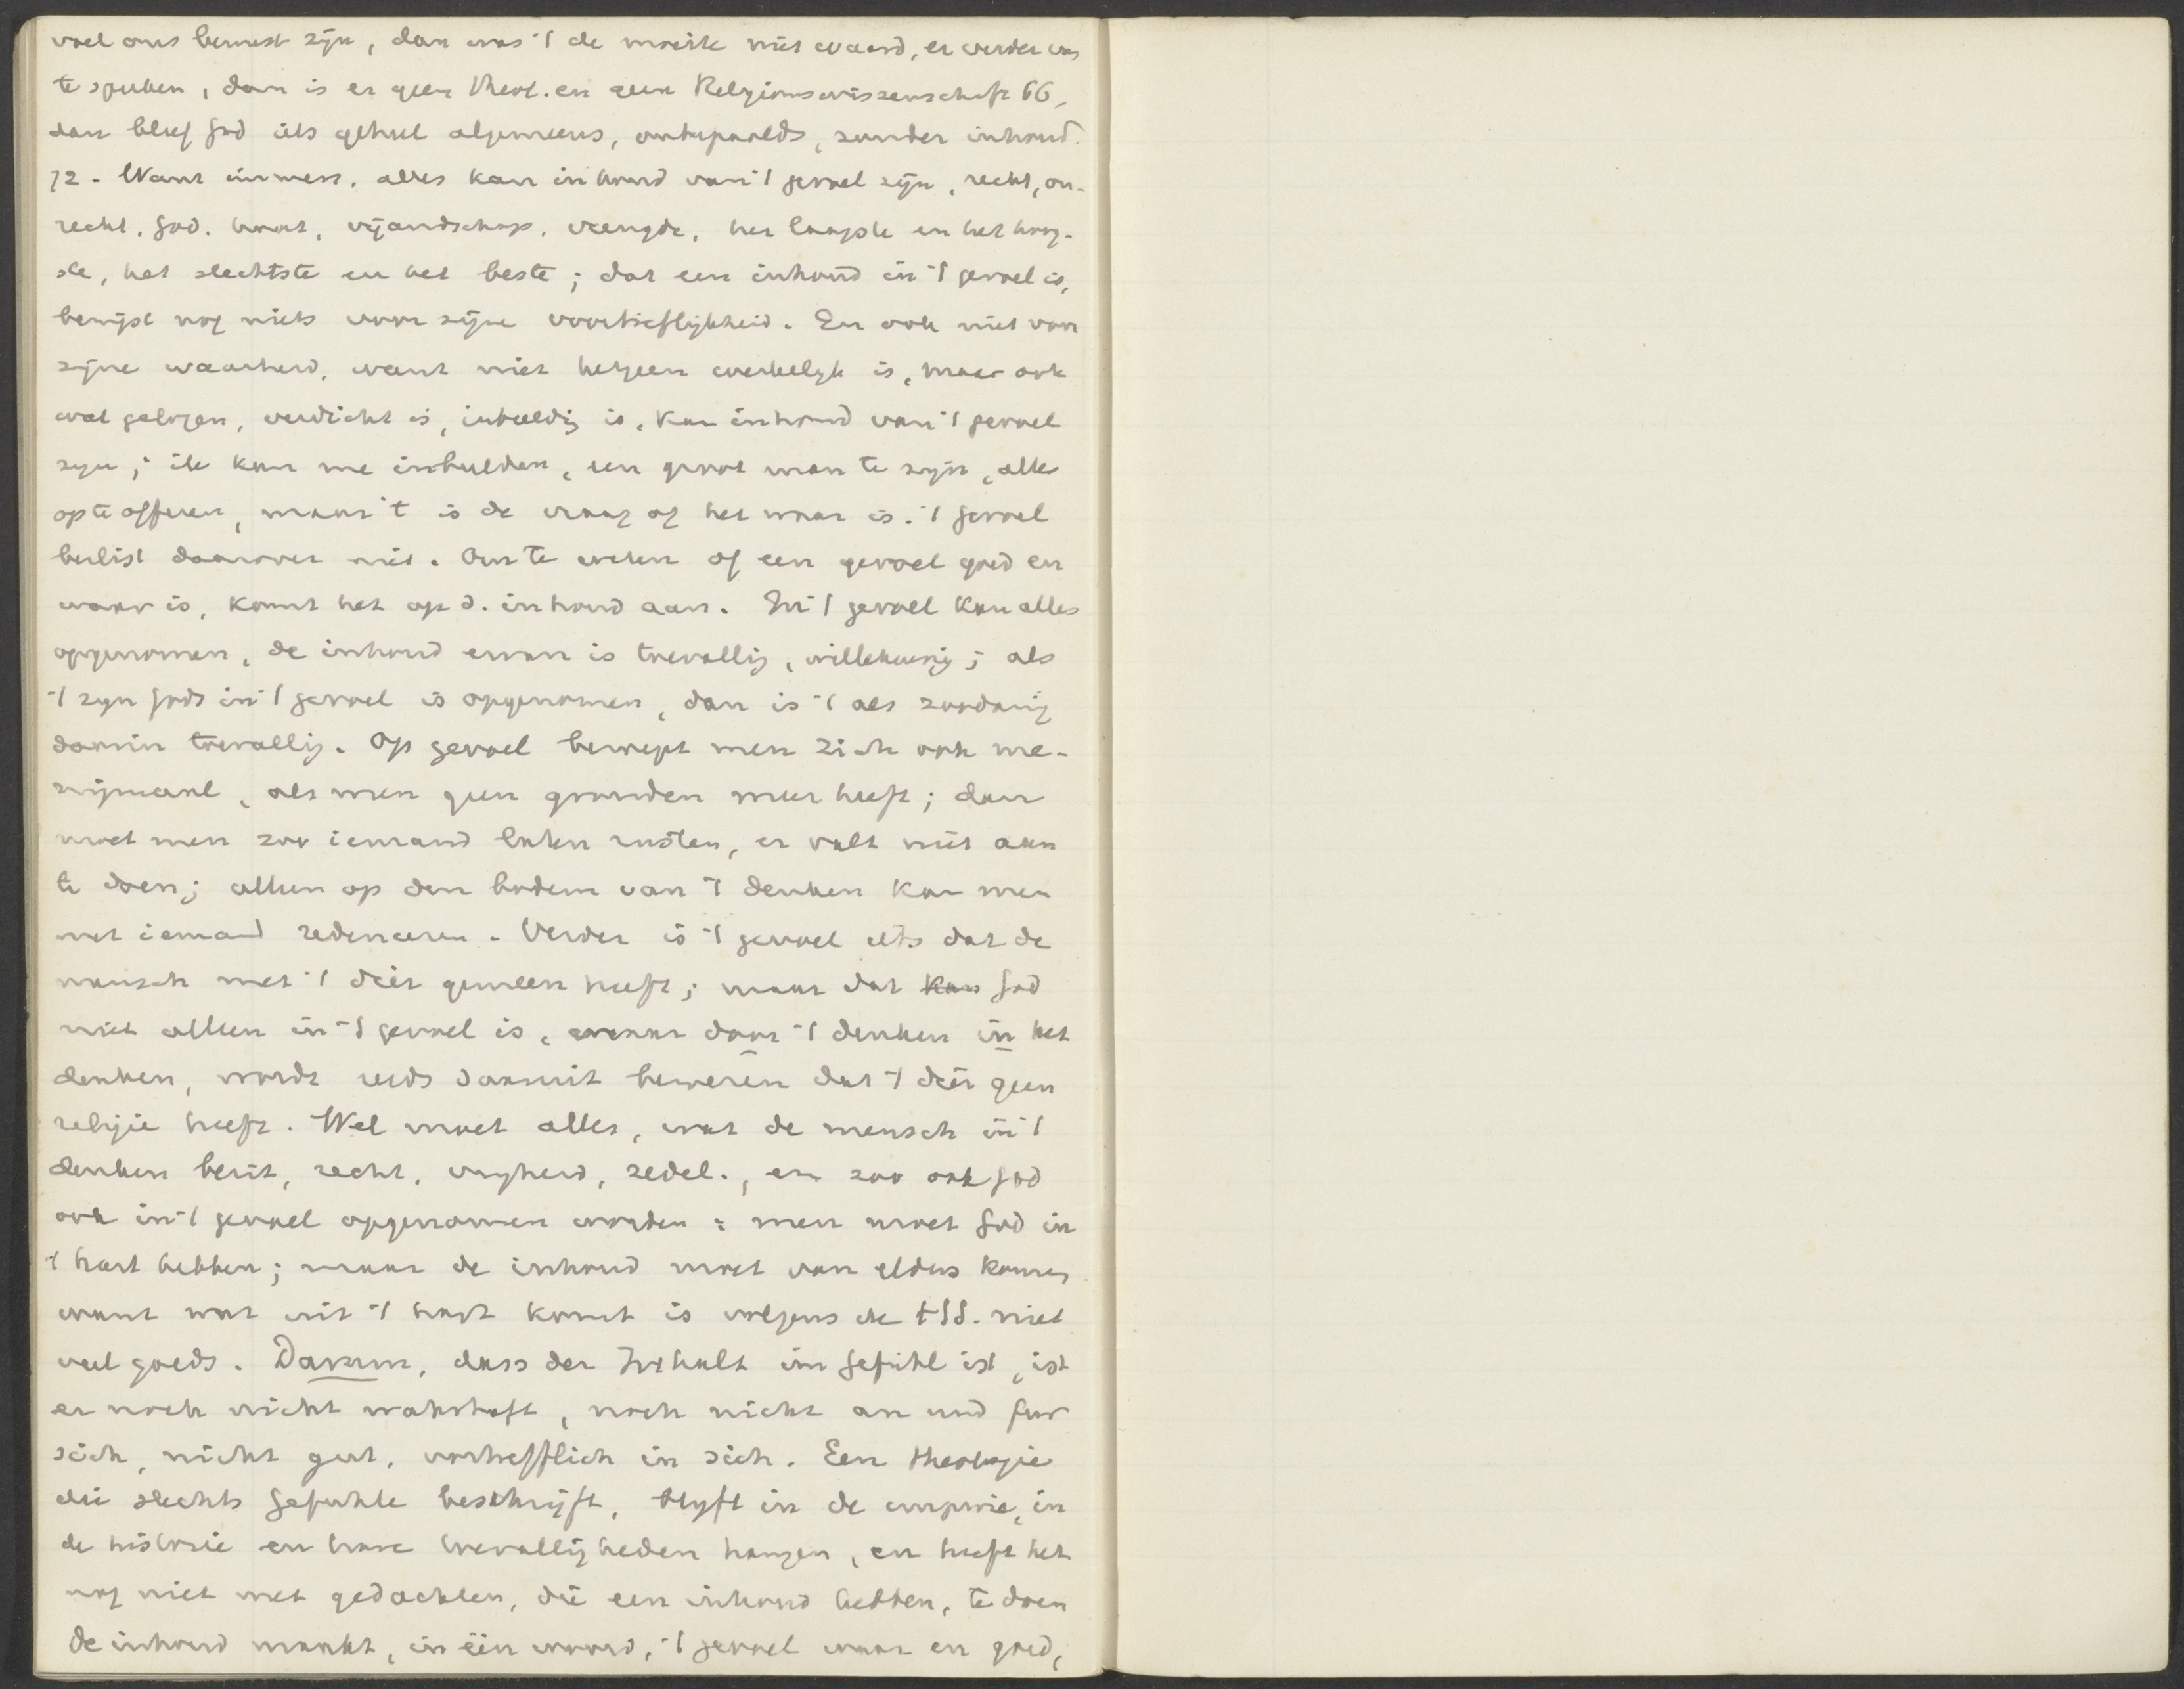 voel ons bewust zijn, dan was 't de moeite niet waard, er verder van
te spreken, dan is er geen theol. en geen Religionswissenschaft 66,
dan bleef God iets geheel algemeens, onbepaalds, zonder inhoud.
72. Want immers, alles kan inhoud van 't gevoel zijn, recht, on-
recht, God, haat, vijandschap, vreugde, het laagste en het hoog-
ste, het slechtste en het beste; dat een inhoud in 't gevoel is,
bewijst nog niets voor zijne voortreflijkheid. En ook niet voor
zijne waarheid, want niet hetgeen werkelijk is, maar ook
wat gelogen, verdicht is, inbeeldig is, kan inhoud van 't gevoel
zijn; ik kan me inbeelden, een groot man te zijn, alles
op te offeren, maar 't is de vraag of het waar is. 't gevoel
beslist daarover niet. Om te weten of een gevoel goed en
waar is, komt het op d. inhoud aan. In 't gevoel kan alles
opgenomen, de inhoud ervan is toevallig, willekeurig; als
't zijn Gods in 't gevoel is opgenomen, dan is 't als zoodanig
daarin toevallig. Op gevoel beroept men zich ook me-
nigmaal, als men geen gronden meer heeft; dan
moet men zoo iemand laten rusten, er valt niet aan
te doen; alleen op den bodem van 't denken kan men
met iemand redeneeren. Verder is 't gevoel iets dat de
mensch met 't dier gemeen heeft; maar dat kan God
niet alleen in 't gevoel is, maar door 't denken in het
denken, wordt reeds daaruit bewezen dat 't dier geen
religie heeft. Wel moet alles, wat de mensch in 't
denken bezit, recht, vrijheid, zedel., en zoo ook God
ook in 't gevoel opgenomen worden: men moet God in
't hart hebben; maar de inhoud moet van elders komen
want wat uit 't hart komt is volgens de HSS. niet
veel goeds. Darum, dass der Inhalt im Gefühl ist, ist
er noch nicht wahrhaft, noch nicht an und für
sich, nicht gut, vortrefflich in sich. Een theologie
die slechts Gefühle beschrijft, blijft in de empirie, in
de historie en hare toevalligheden hangen, en heeft het
nog niet met gedachten, die een inhoud hebben, te doen
De inhoud maakt, in één woord, 't gevoel waar en goed,